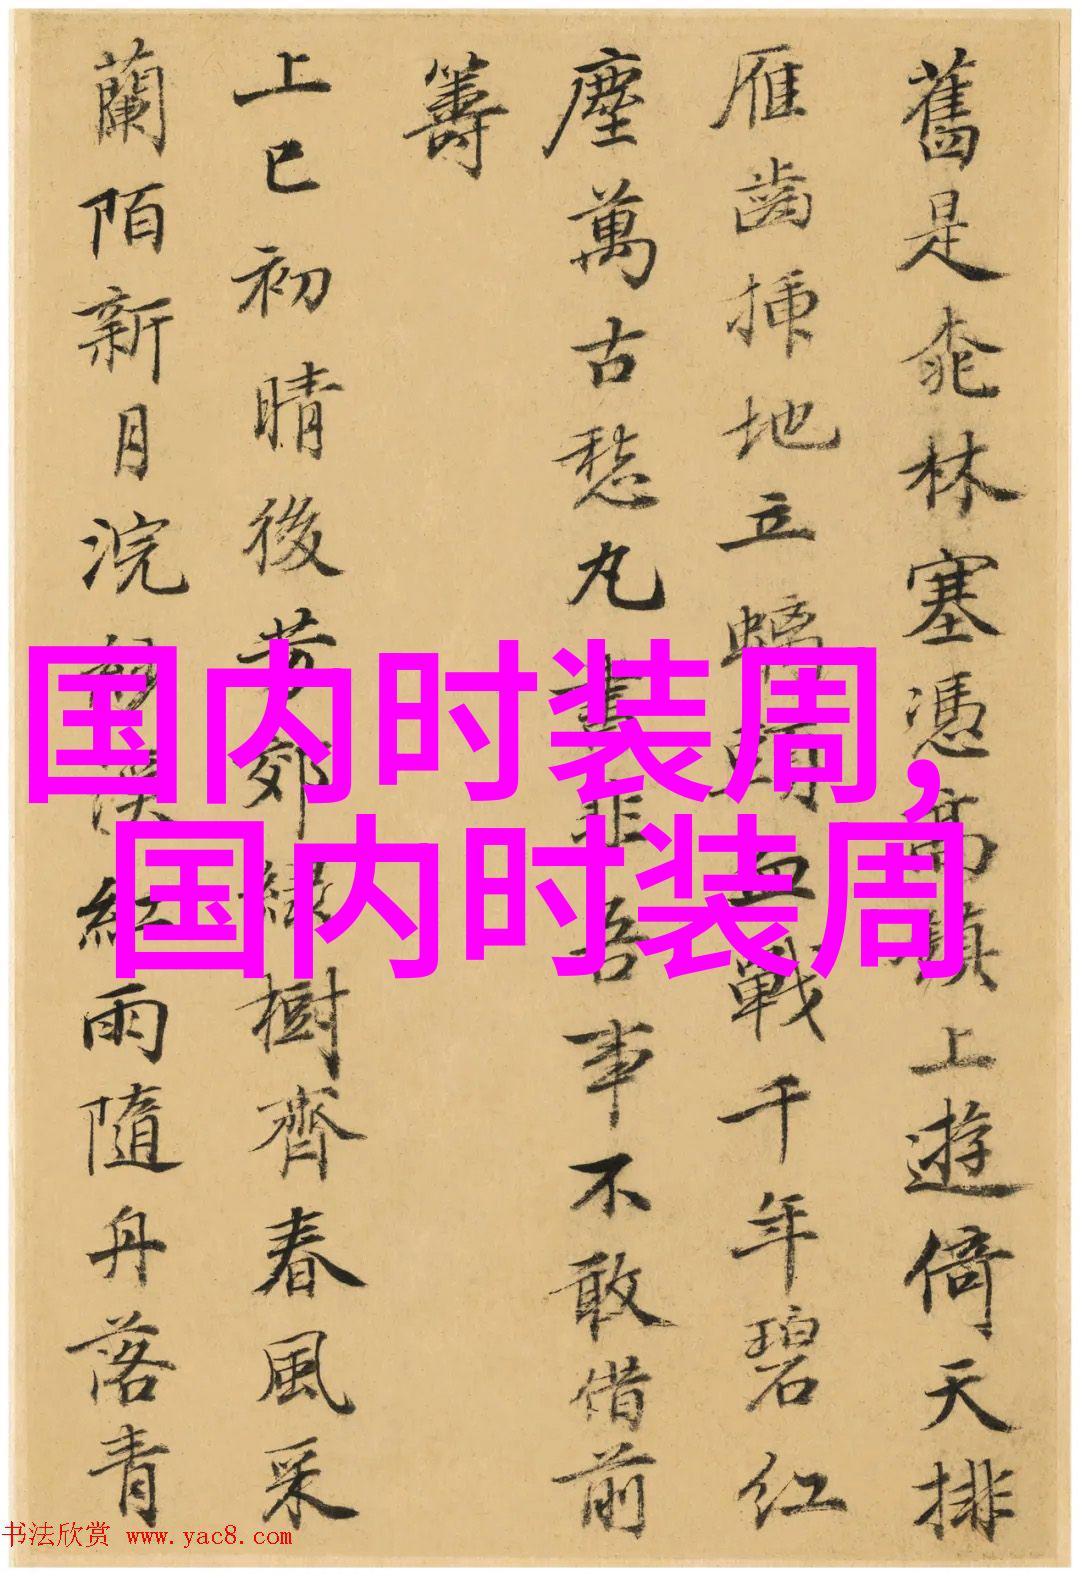 舊是桃林塞憑高上遊倚天排
雁齒插地立螭頭血戰千年碧紅
塵萬古愁丸書非吾事不敢借前
籌
上巳初晴後芳郊緑樹齊春風采
蘭陌新月浣紗溪紅雨隨舟落青
国内时装周,
国内时装周
书法欣赏 www.yac8.com